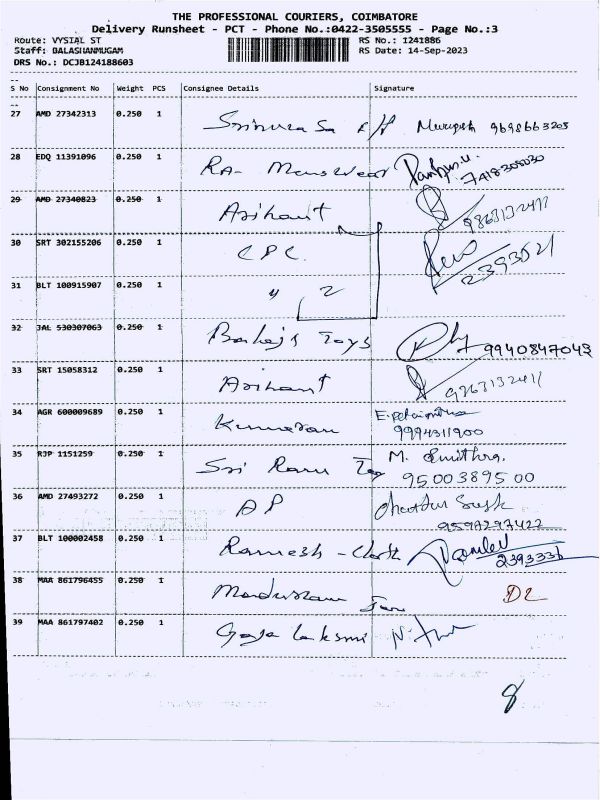 THE PROFESSIONAL COURIERS, COIMBATORE
Delivery Runsheet - PCT - Phone No.:0422-3505555 - Page No.:3
Route: VYSIAL ST RS No.: 1241886
Staff: BALASHANMUGAM RS Date: 14-Sep-2023
DRS No.: DCJB124188603
S No Consignment No Weight PCS Consignee Details Signature
27 AMD 27342313 0.250 1
28 EDQ 11391096 0.250 1 RA- Menswear 7418305030
29 AMD 27340823 0.250 1 Arihant
30 SRT 302155206 0.250 1 CPC
31 BLT 100915907 0.250 1 " 2
32 JAL 530307063 0.250 1 Toys 9940847043
33 SRT 15058312 0.250 1 Arihant
34 AGR 600009689 0.250 1 Kumaran
9994311900
35 RJP 1151259 0.250 1 Sri Ram Toy M.
9500389500
36 AMD 27493272 0.250 1 AP
9597297422
37 BLT 100002458 0.250 1 Ramesh - Cloth 2393336
38 MAA 861796455 0.250 1 D2
39 MAA 861797402 0.250 1 Gaja Laksmi
8